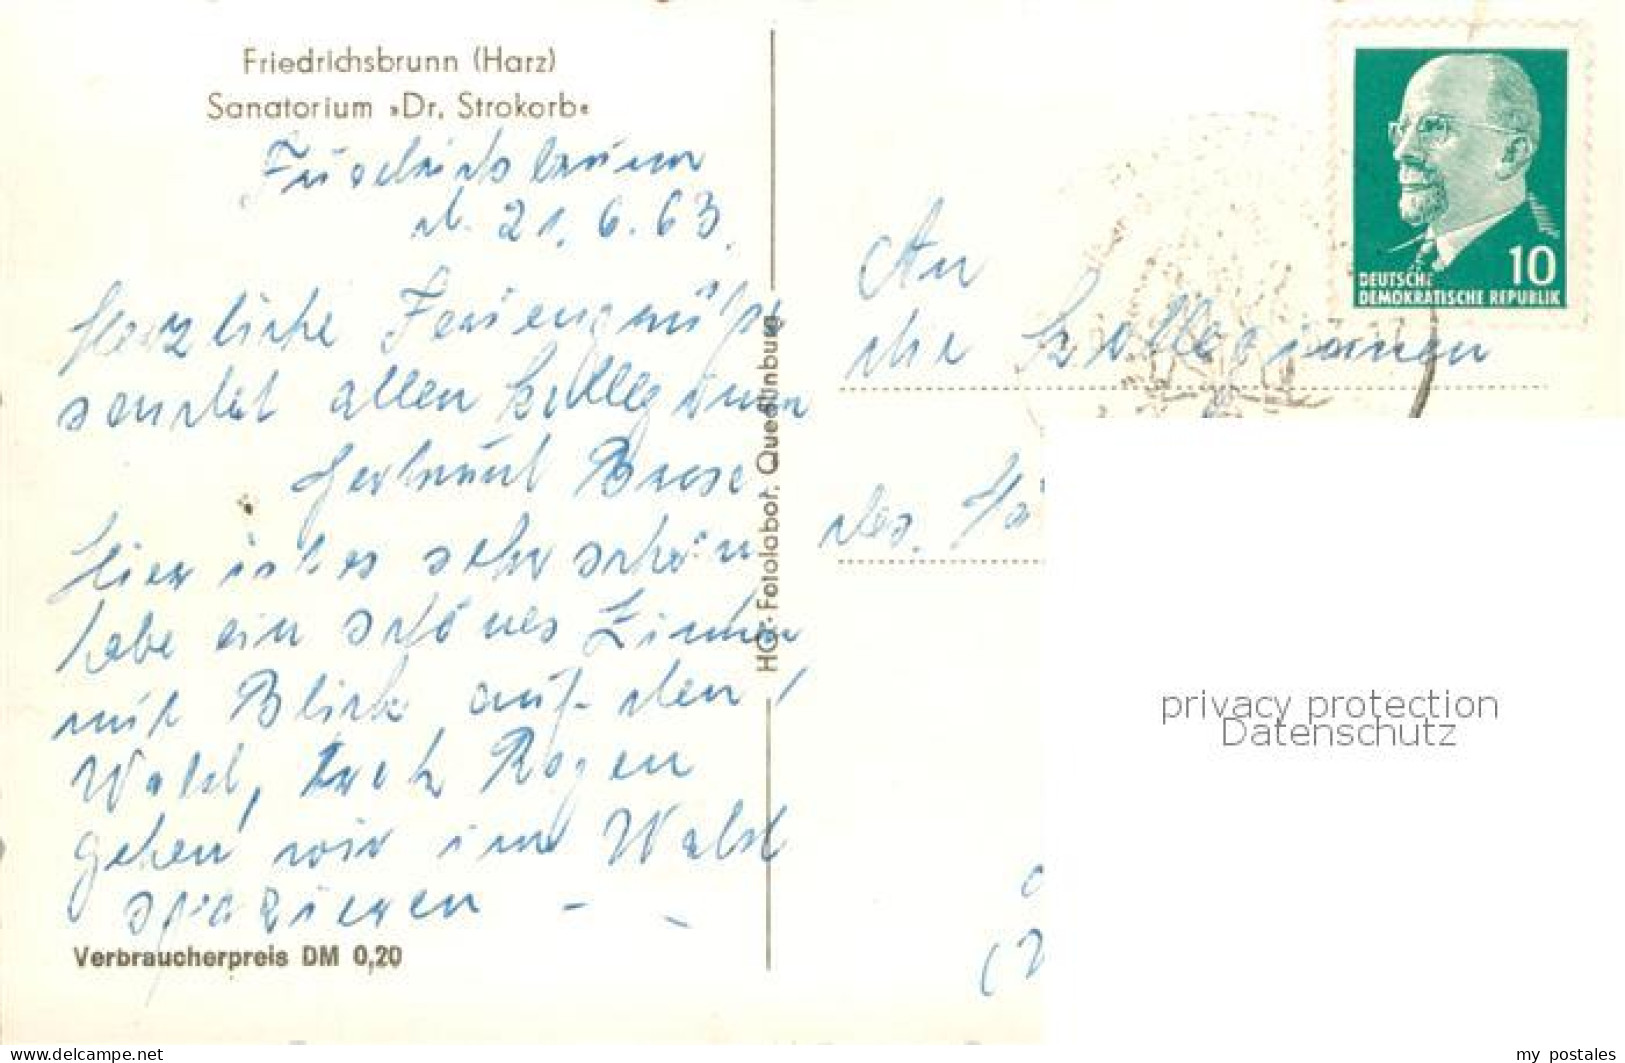 Friedrichsbrunn (Harz)
Sanatorium »Dr. Strokorb«
Friedrichsbrunn
d. 21. 6. 63.
Herzliche Feriengrüße
sendet allen Kolleginnen
Gertraud Brose
Hier ist es sehr schön
habe ein schönes Zimmer
mit Blick auf den
Wald, trotz Regen
gehen wir im Wald
spazieren - -
Verbraucherpreis DM 0,20
HO: Fotolabor, Quedlinburg
DEUTSCHE
DEMOKRATISCHE REPUBLIK
10
An
die Kolleginnen
des.
privacy protection
Datenschutz
www.delcampe.net
my_postales